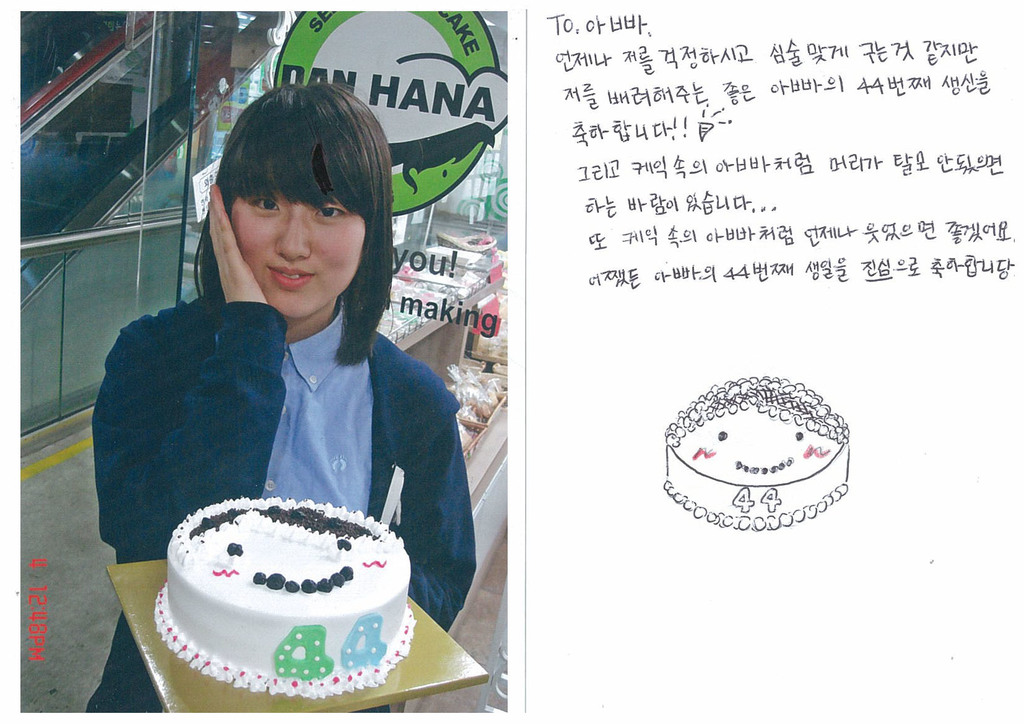 SE
CAKE
DAN HANA
you!
making
44
4 12:48PM
TO. 아빠빠,
언제나 저를 걱정하시고 심술 맞게 구는 것 같지만
저를 배려해주는 좋은 아빠의 44번째 생신을
축하합니다!!
그리고 케익 속의 아빠처럼 머리가 탈모 안됬으면
하는 바람이 있습니다...
또 케익 속의 아빠처럼 언제나 웃었으면 좋겠어요.
어쨌든 아빠의 44번째 생일을 진심으로 축하합니당
44